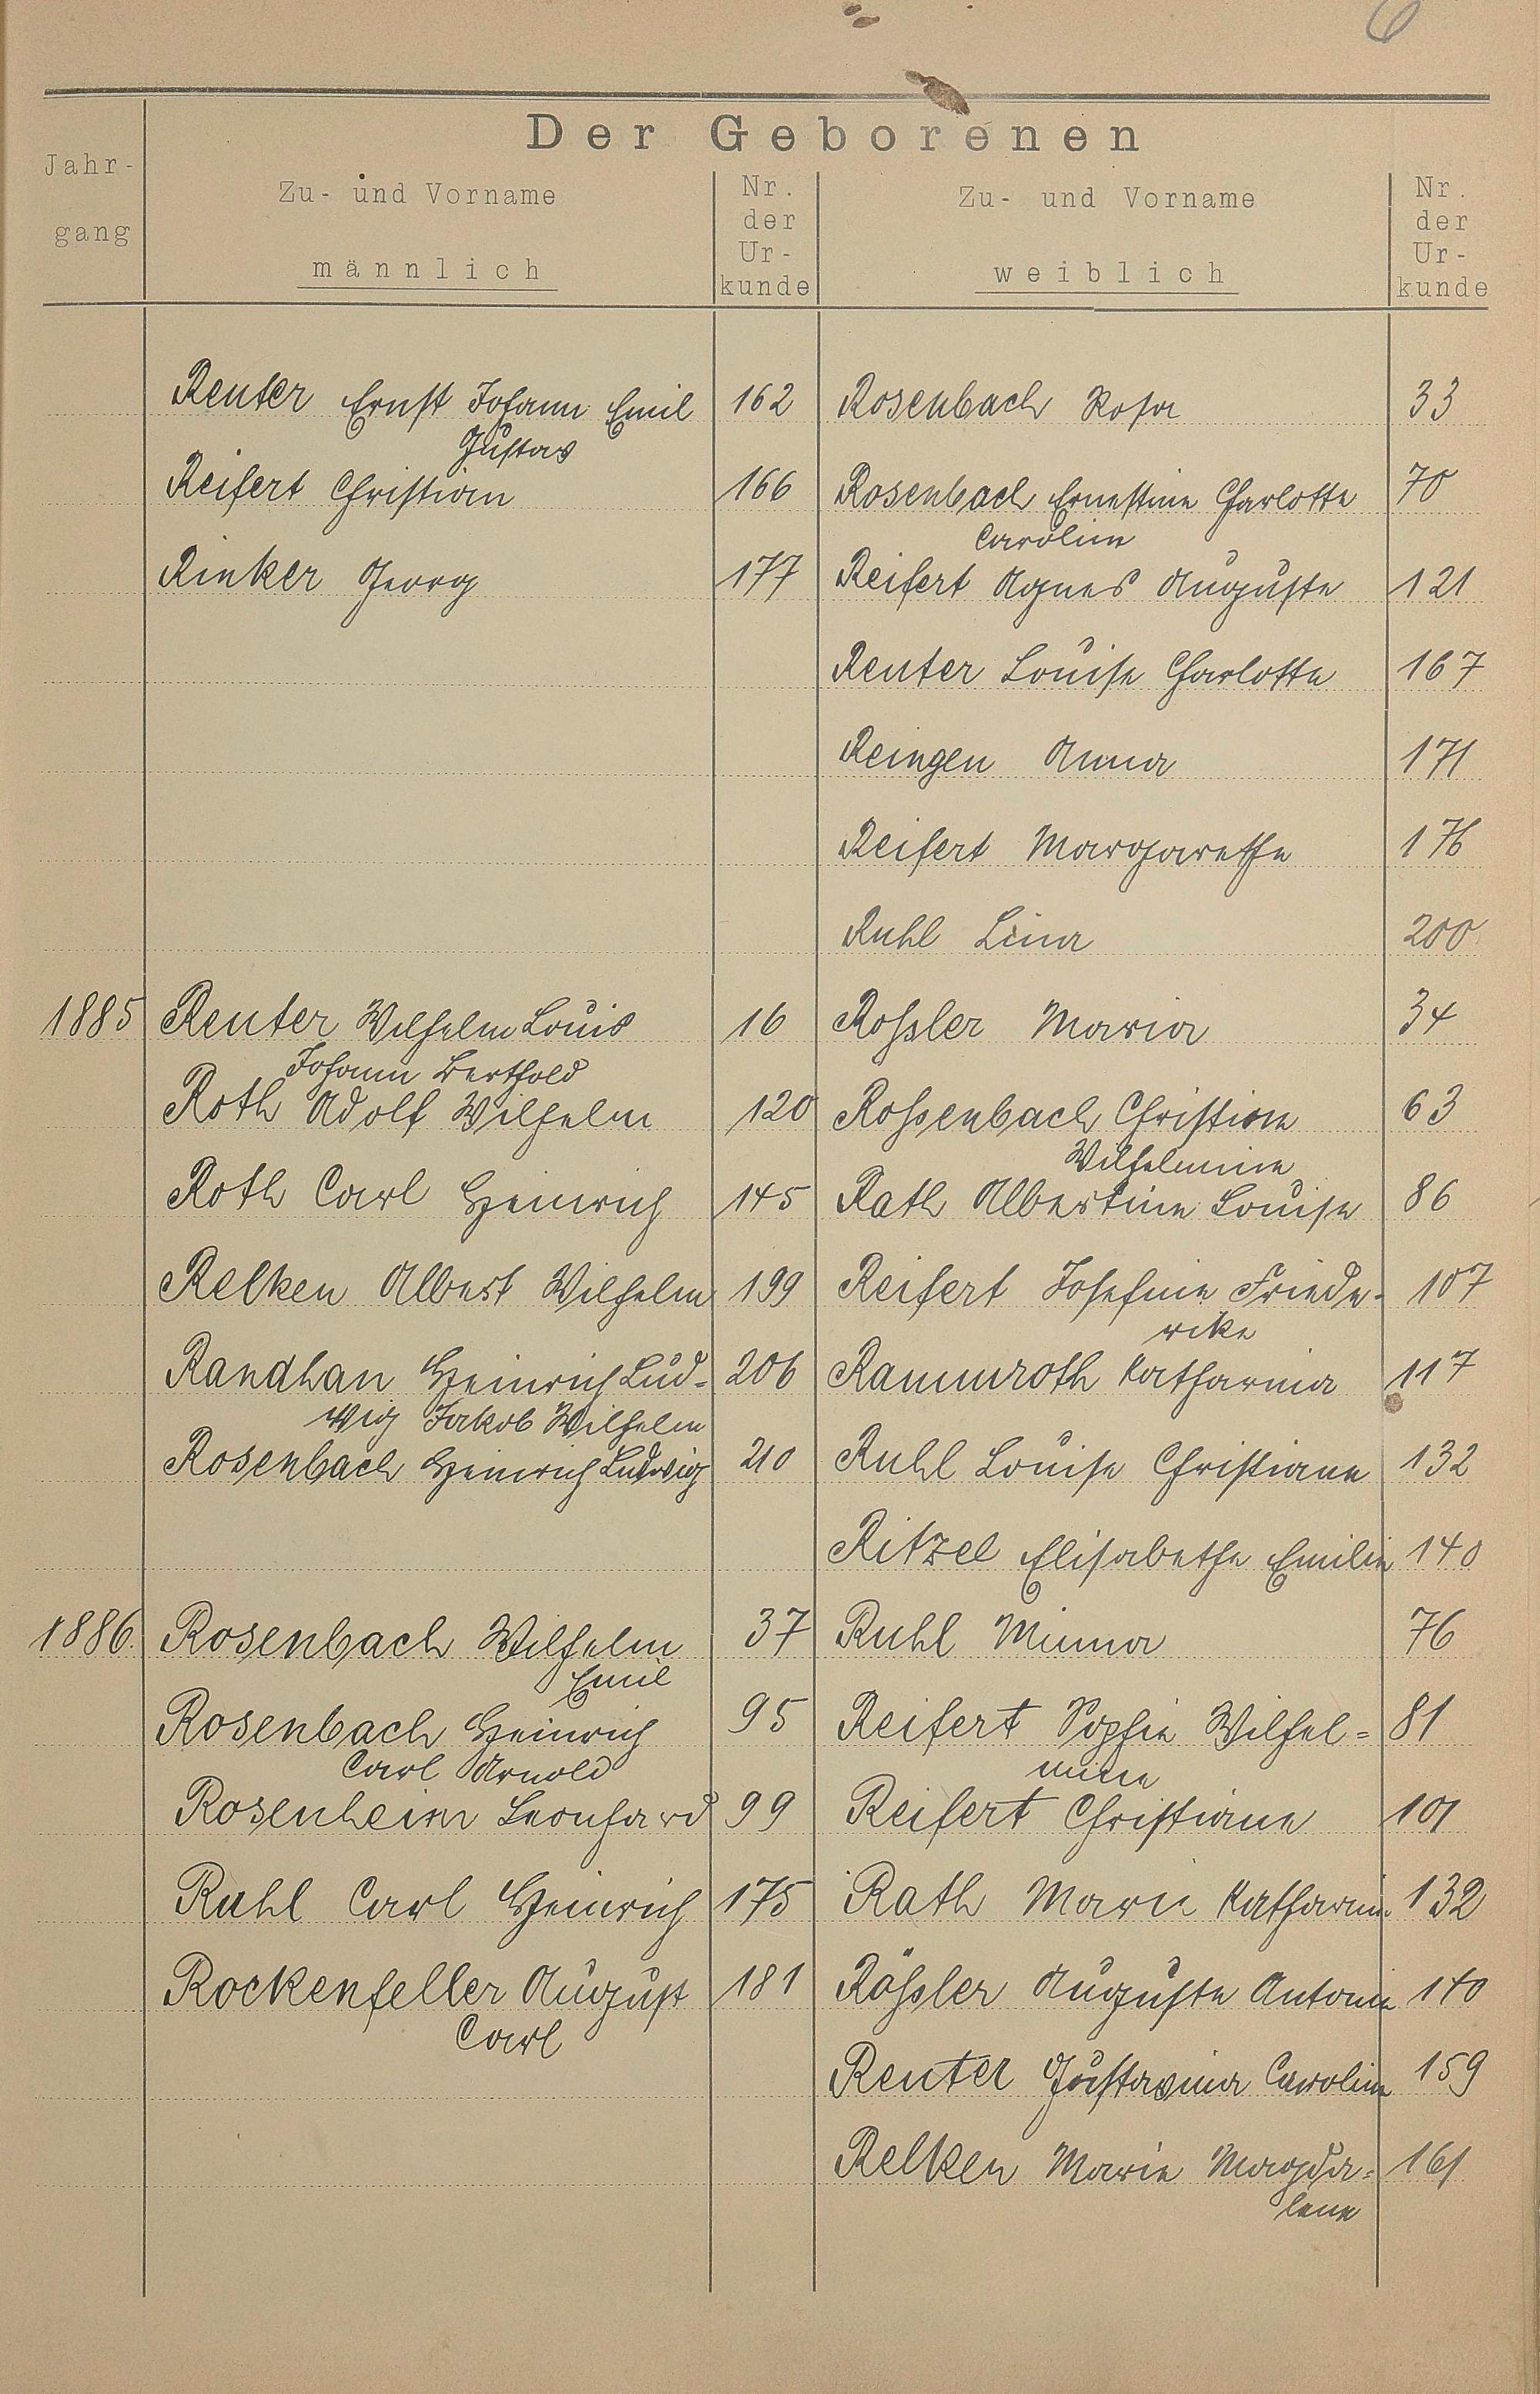 6
Der Geborenen
Jahr-
gang
Zu- und Vorname
männlich
Nr.
der
Ur-
kunde
Zu- und Vorname
weiblich
Nr.
der
Ur-
kunde
Reuter Ernst Johann Emil 162 Rosenbach Rosa 33
Gustav
Reifert Christian 166 Rosenbach Ernestine Charlotte 70
Caroline
Rinker Georg 177 Reifert Agnes Auguste 121
Reuter Louise Charlotte 167
Reingen Anna 171
Reifert Margarethe 176
Ruhl Lina 200
1885 Reuter Wilhelm Louis 16 Roßler Maria 34
Johann Berthold
Roth Adolf Wilhelm 120 Roßenbach Christine 63
Wilhelmine
Roth Carl Heinrich 145 Rath Albertine Louise 86
Relken Albert Wilhelm 199 Reifert Josefine Friede- 107
rike
Randhan Heinrich Lud- 206 Rammroth Katharina 117
wig Jakob Wilhelm
Rosenbach Heinrich Ludwig 210 Ruhl Louise Christiane 132
Ritzel Elisabethe Emilie 140
1886. Rosenbach Wilhelm 37 Ruhl Minna 76
Emil
Rosenbach Heinrich 95 Reifert Sophie Wilhel= 81
Carl Arnold
mine
Rosenheim Leonhard 99 Reifert Christiane 101
Ruhl Carl Heinrich 175 Rath Marie Katharine 132
Rockenfeller August 181 Rößler Auguste Antonie 140
Carl
Reuter Gustavina Caroline 159
Relken Marie Magda= 161
lene